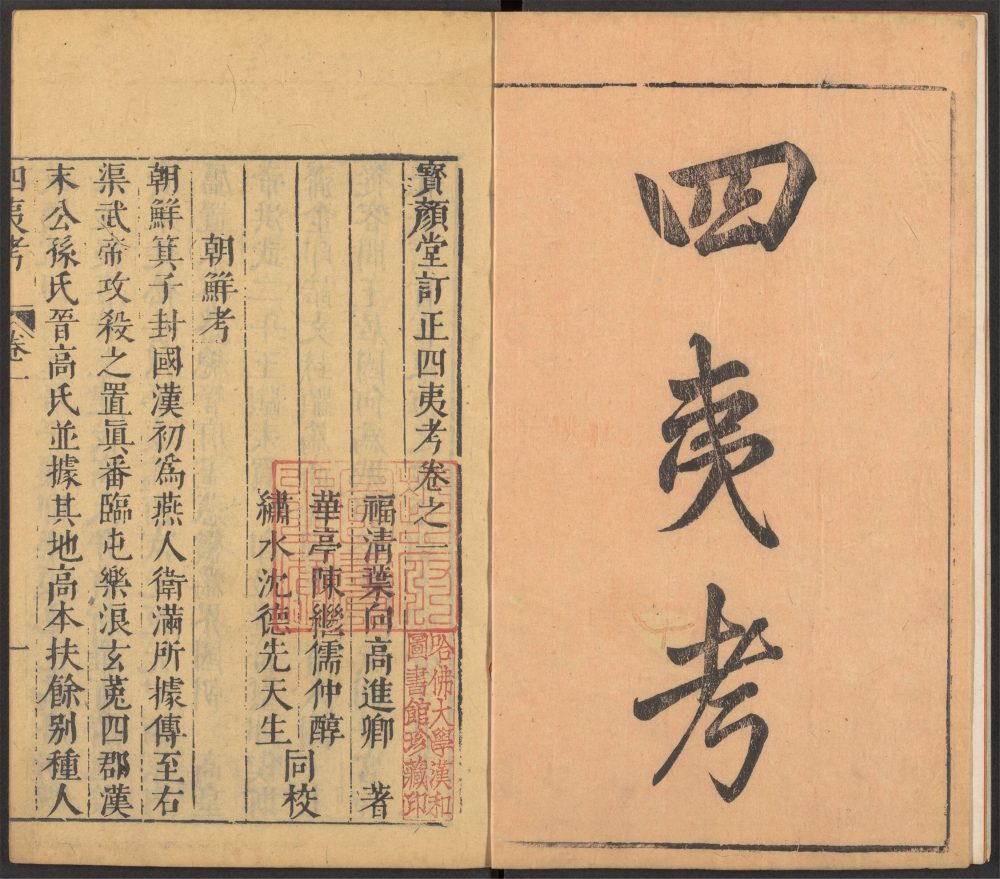 四夷考
寳顏堂訂正四夷考卷之一
福清葉向高進卿 著
華亭陳繼儒仲醇
繡水沈德先天生
同校
朝鮮考
朝鮮箕子封國漢初為燕人衛滿所據傳至右
渠武帝攻殺之置眞番臨屯樂浪玄菟四郡漢
末公孫氏晉高氏並據其地高本扶餘别種人
四夷考 卷一 一
哈佛大學漢和
圖書館珍藏印